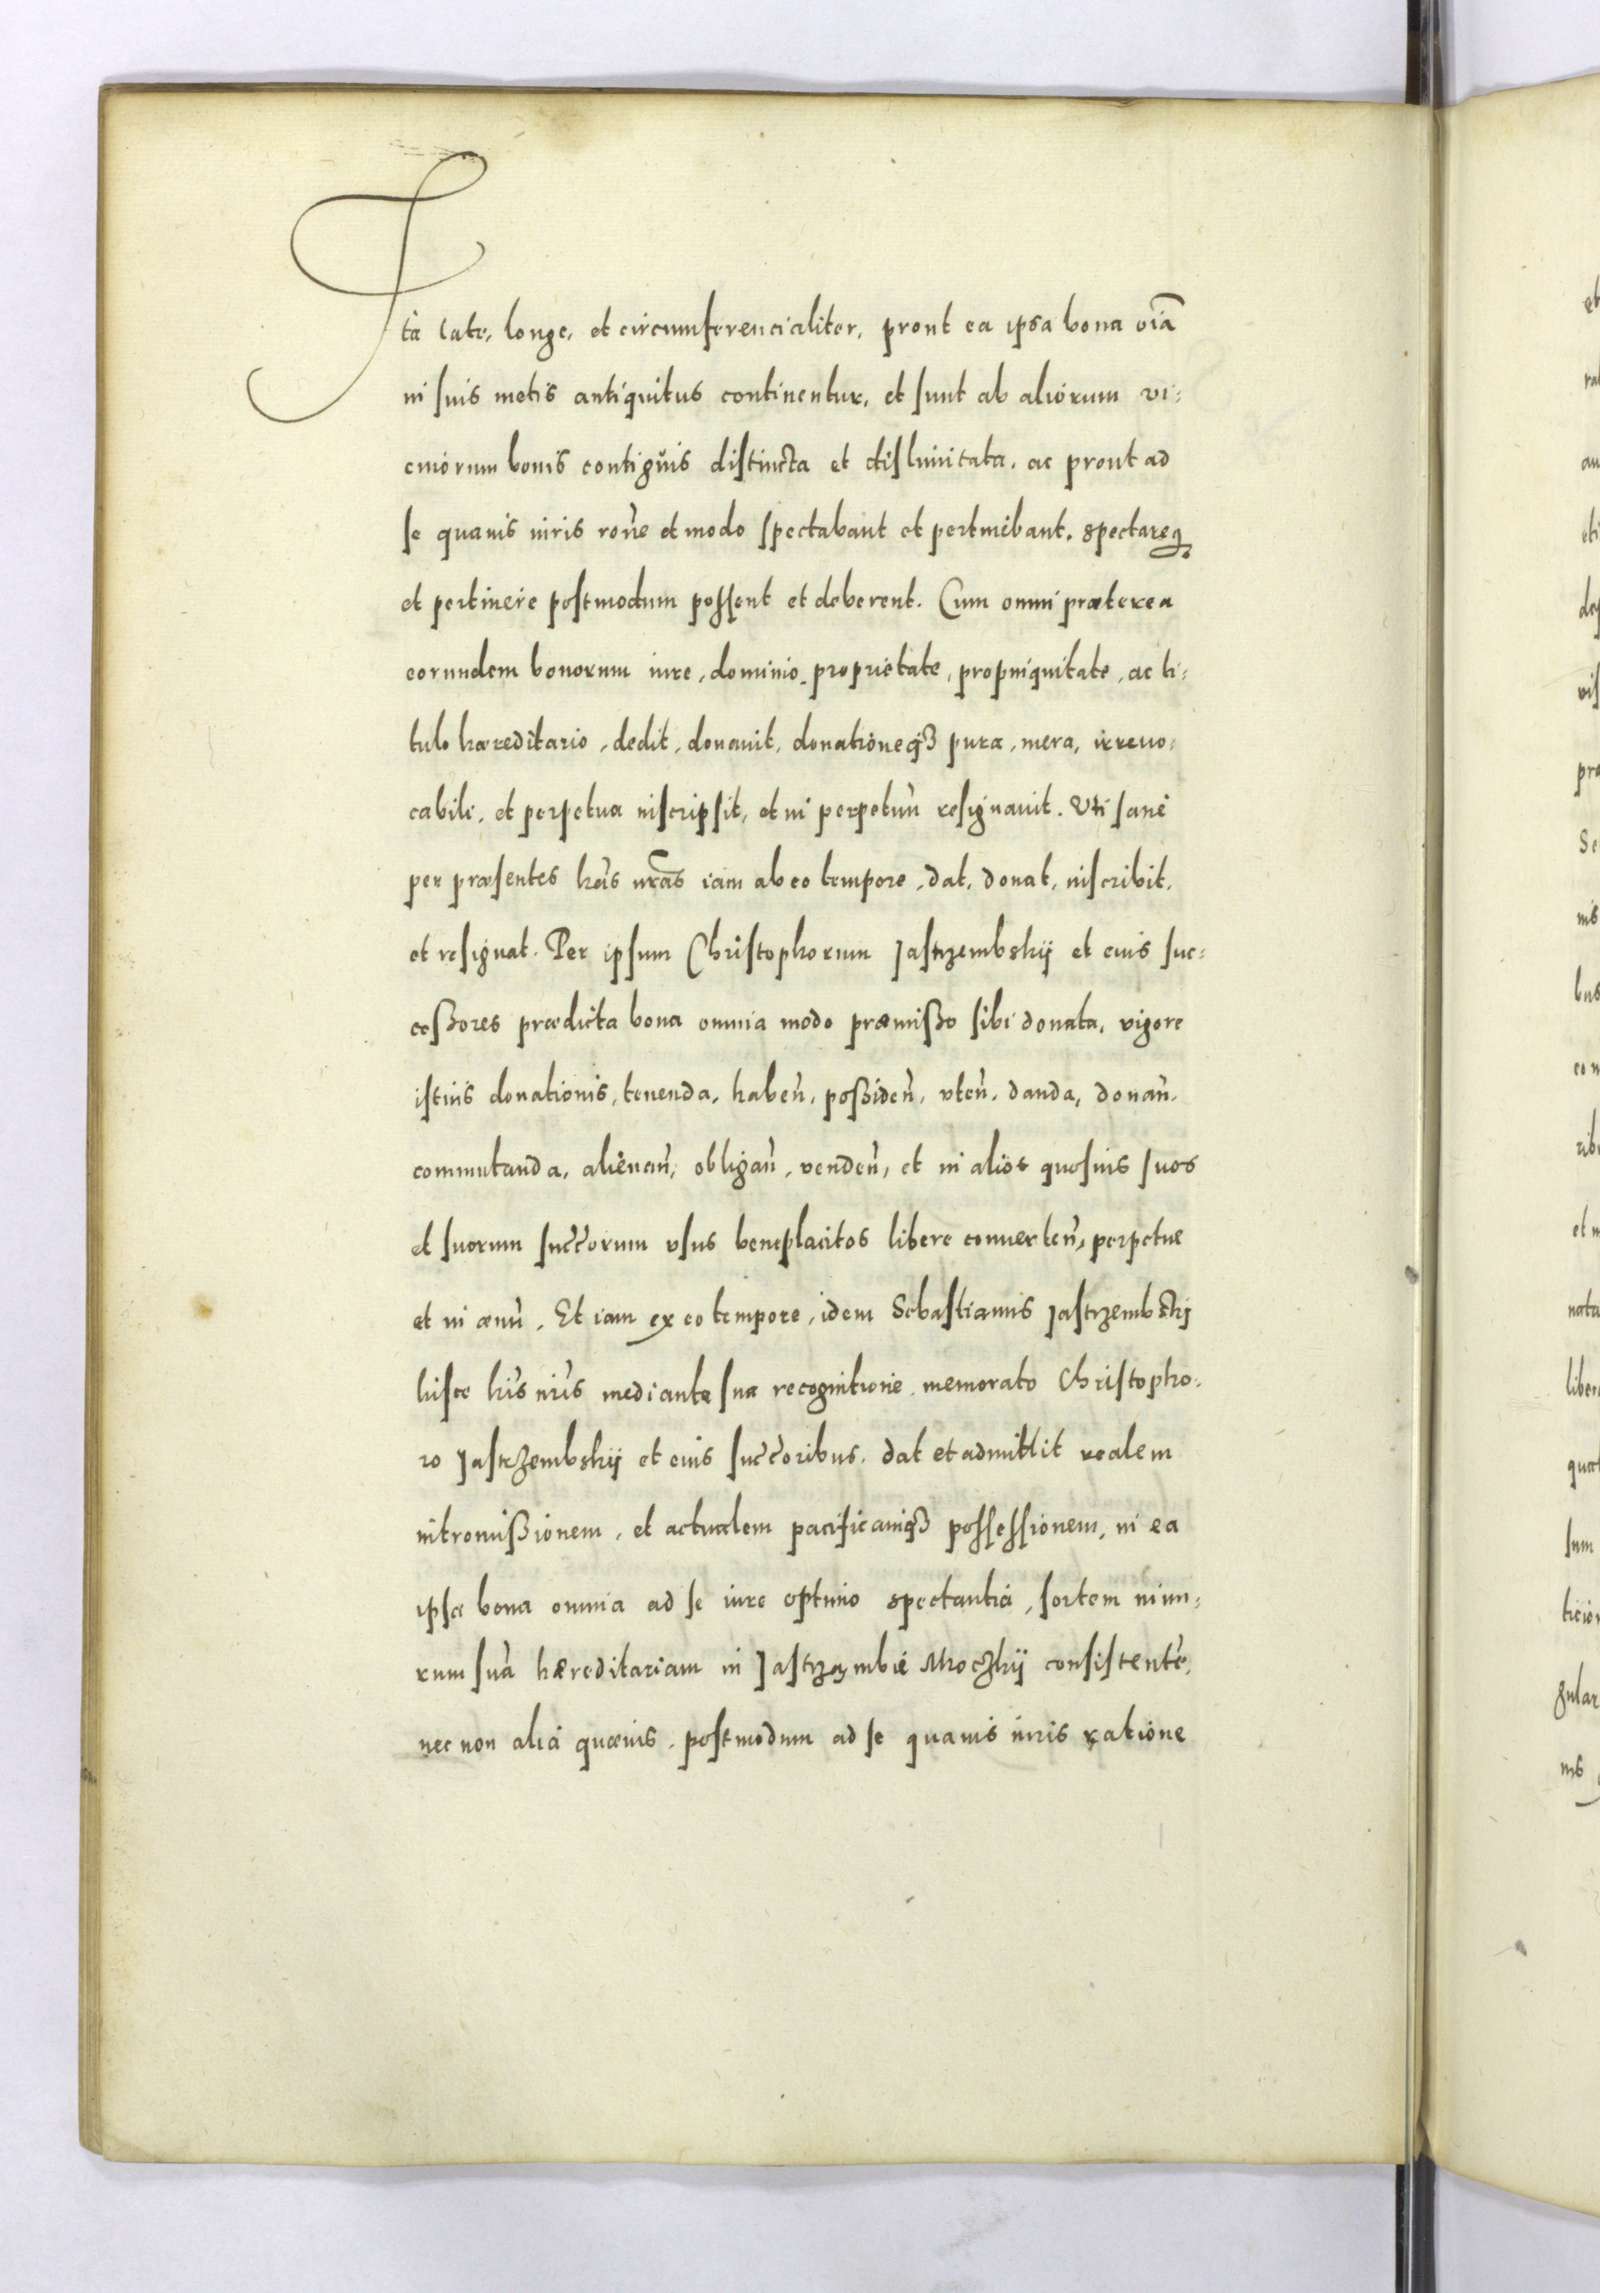 Ita late, longe, et circumferencialiter, prout ea ipsa bona oi͠a
in suis metis antiquitus continentur, et sunt ab aliorum vi-
cinorum bonis contiguis distincta et dislimitata, ac prout ad
se quauis iuris ron̄e et modo spectabant et pertinebant, spectareq;
et pertinere postmodum possent et deberent. Cum omni præterea
eorundem bonorum iure, dominio, proprietate, propinquitate, ac ti-
tulo hæreditario, dedit, donauit, donationeq₃ pura, mera, irreuo-
cabili, et perpetua inscripsit, et in perpetuū resignauit. Vti sane
per præsentes hās nr̄as iam ab eo tempore, dat, donat, inscribit,
et resignat. Per ipsum Christophorum Jastrzembskij et eius suc-
cessores prædicta bona omnia modo præmisso sibi donata, vigore
istius donationis, tenenda, haben̄, possiden̄, vten̄, danda, donan̄,
commutanda, alienan̄, obligan̄, venden̄, et in alios quosuis suos
et suorum succ̄orum vsus beneplacitos libere conuerten̄, perpetue
et in æuū. Et iam ex eo tempore, idem Sebastianus Jastrzembskj
hisce hīs nr̄is mediante sua recognitione, memorato Christopho-
ro Jastrzembskij et eius succ̄oribus, dat et admittit realem
intromissionem, et actualem pacificamq₃ possessionem, in ea
ipsa bona omnia ad se iure optimo spectantia, sortem nimi-
rum suā hæreditariam in Jastrzembie Mroczkij consistentē,
nec non alia quæuis, postmodum ad se quauis iuris ratione